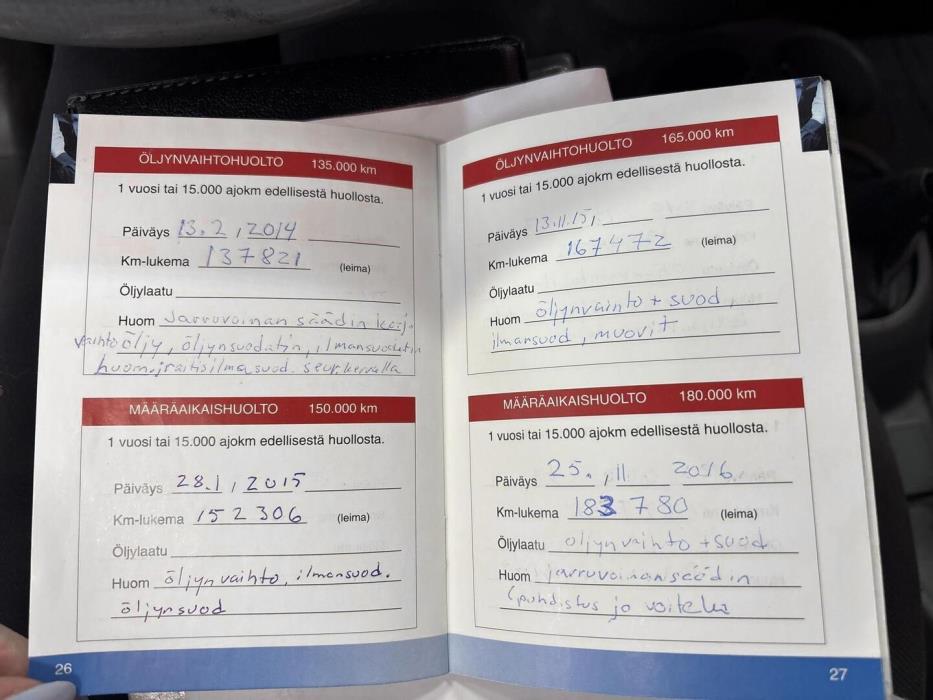 ÖLJYNVAIHTOHUOLTO 135.000 km
1 vuosi tai 15.000 ajokm edellisestä huollosta.
Päiväys 13.2, 2014
Km-lukema 137821 (leima)
Öljylaatu
Huom Jarruvoiman säädin
vaihto öljy, öljynsuodatin, ilmansuodatin
huom. raitisilmasuod. seur. kerralla
MÄÄRÄAIKAISHUOLTO 150.000 km
1 vuosi tai 15.000 ajokm edellisestä huollosta.
Päiväys 28.1, 2015
Km-lukema 152306 (leima)
Öljylaatu
Huom öljynvaihto, ilmansuod.
öljynsuod
26
ÖLJYNVAIHTOHUOLTO 165.000 km
1 vuosi tai 15.000 ajokm edellisestä huollosta.
Päiväys 13.11.15,
Km-lukema 167472 (leima)
Öljylaatu
Huom öljynvaihto + suod,
ilmansuod, muovit
MÄÄRÄAIKAISHUOLTO 180.000 km
1 vuosi tai 15.000 ajokm edellisestä huollosta.
Päiväys 25., 11 2016.
Km-lukema 183 780 (leima)
Öljylaatu öljynvaihto + suod
Huom jarruvoiman säädin
(puhdistus ja voitelu
27